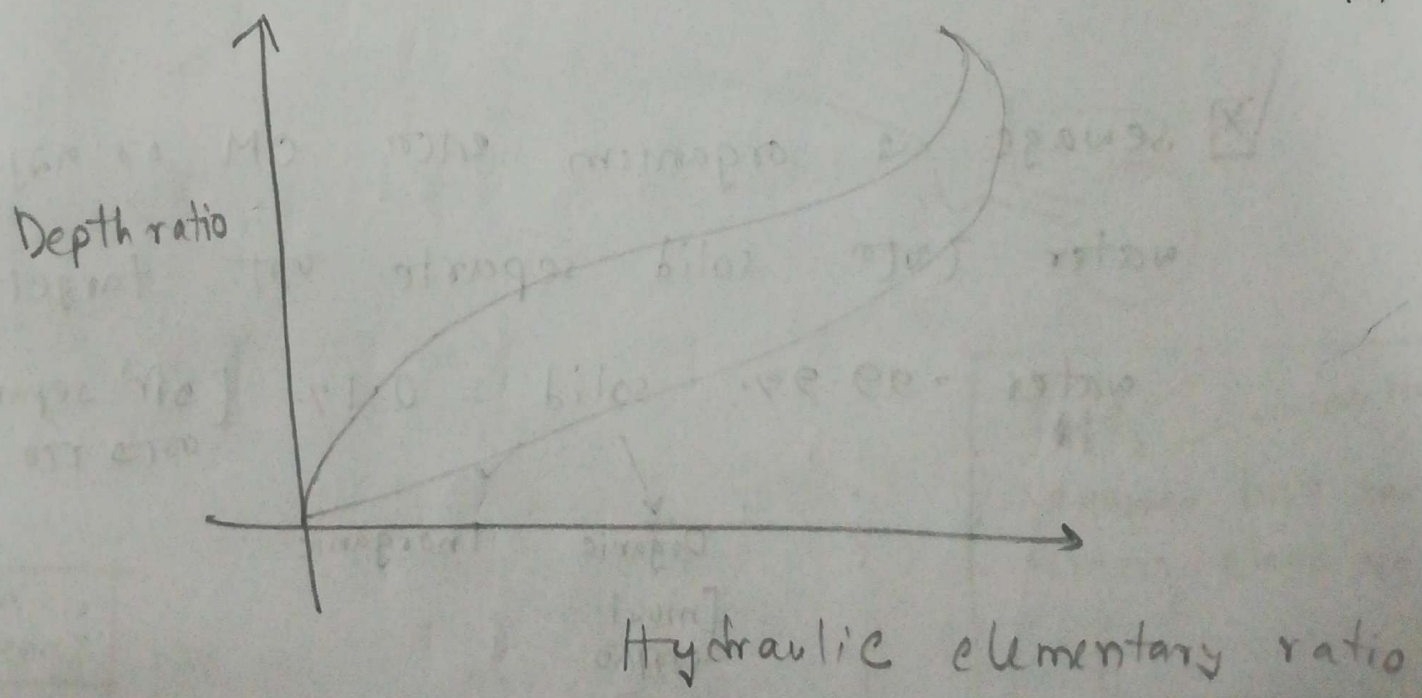 Depth ratio
Hydraulic elementary ratio